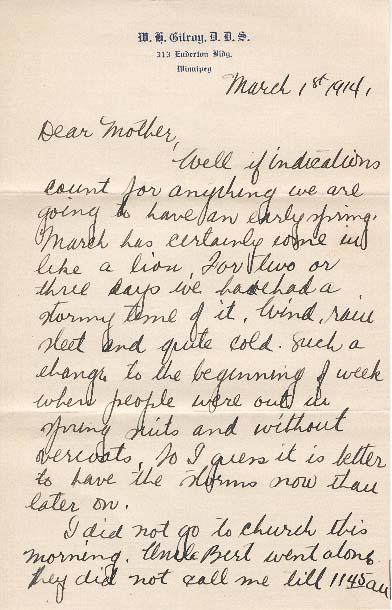 W. H. Gilroy, D. D. S.
313 Enderton Bldg.
Winnipeg
March 1st 1914,
Dear Mother,
Well if indications
count for anything we are
going to have an early spring.
March has certainly come in
like a lion, For two or
three days we had had a
stormy time of it. Wind, rain
sleet and quite cold. Such a
change to the beginning of week
when people were out in
spring suits and without
overcoats. So I guess it is better
to have the storms now than
later on.
I did not go to church this
morning. Uncle Bert went alone.
They did not call me till 11 45 am